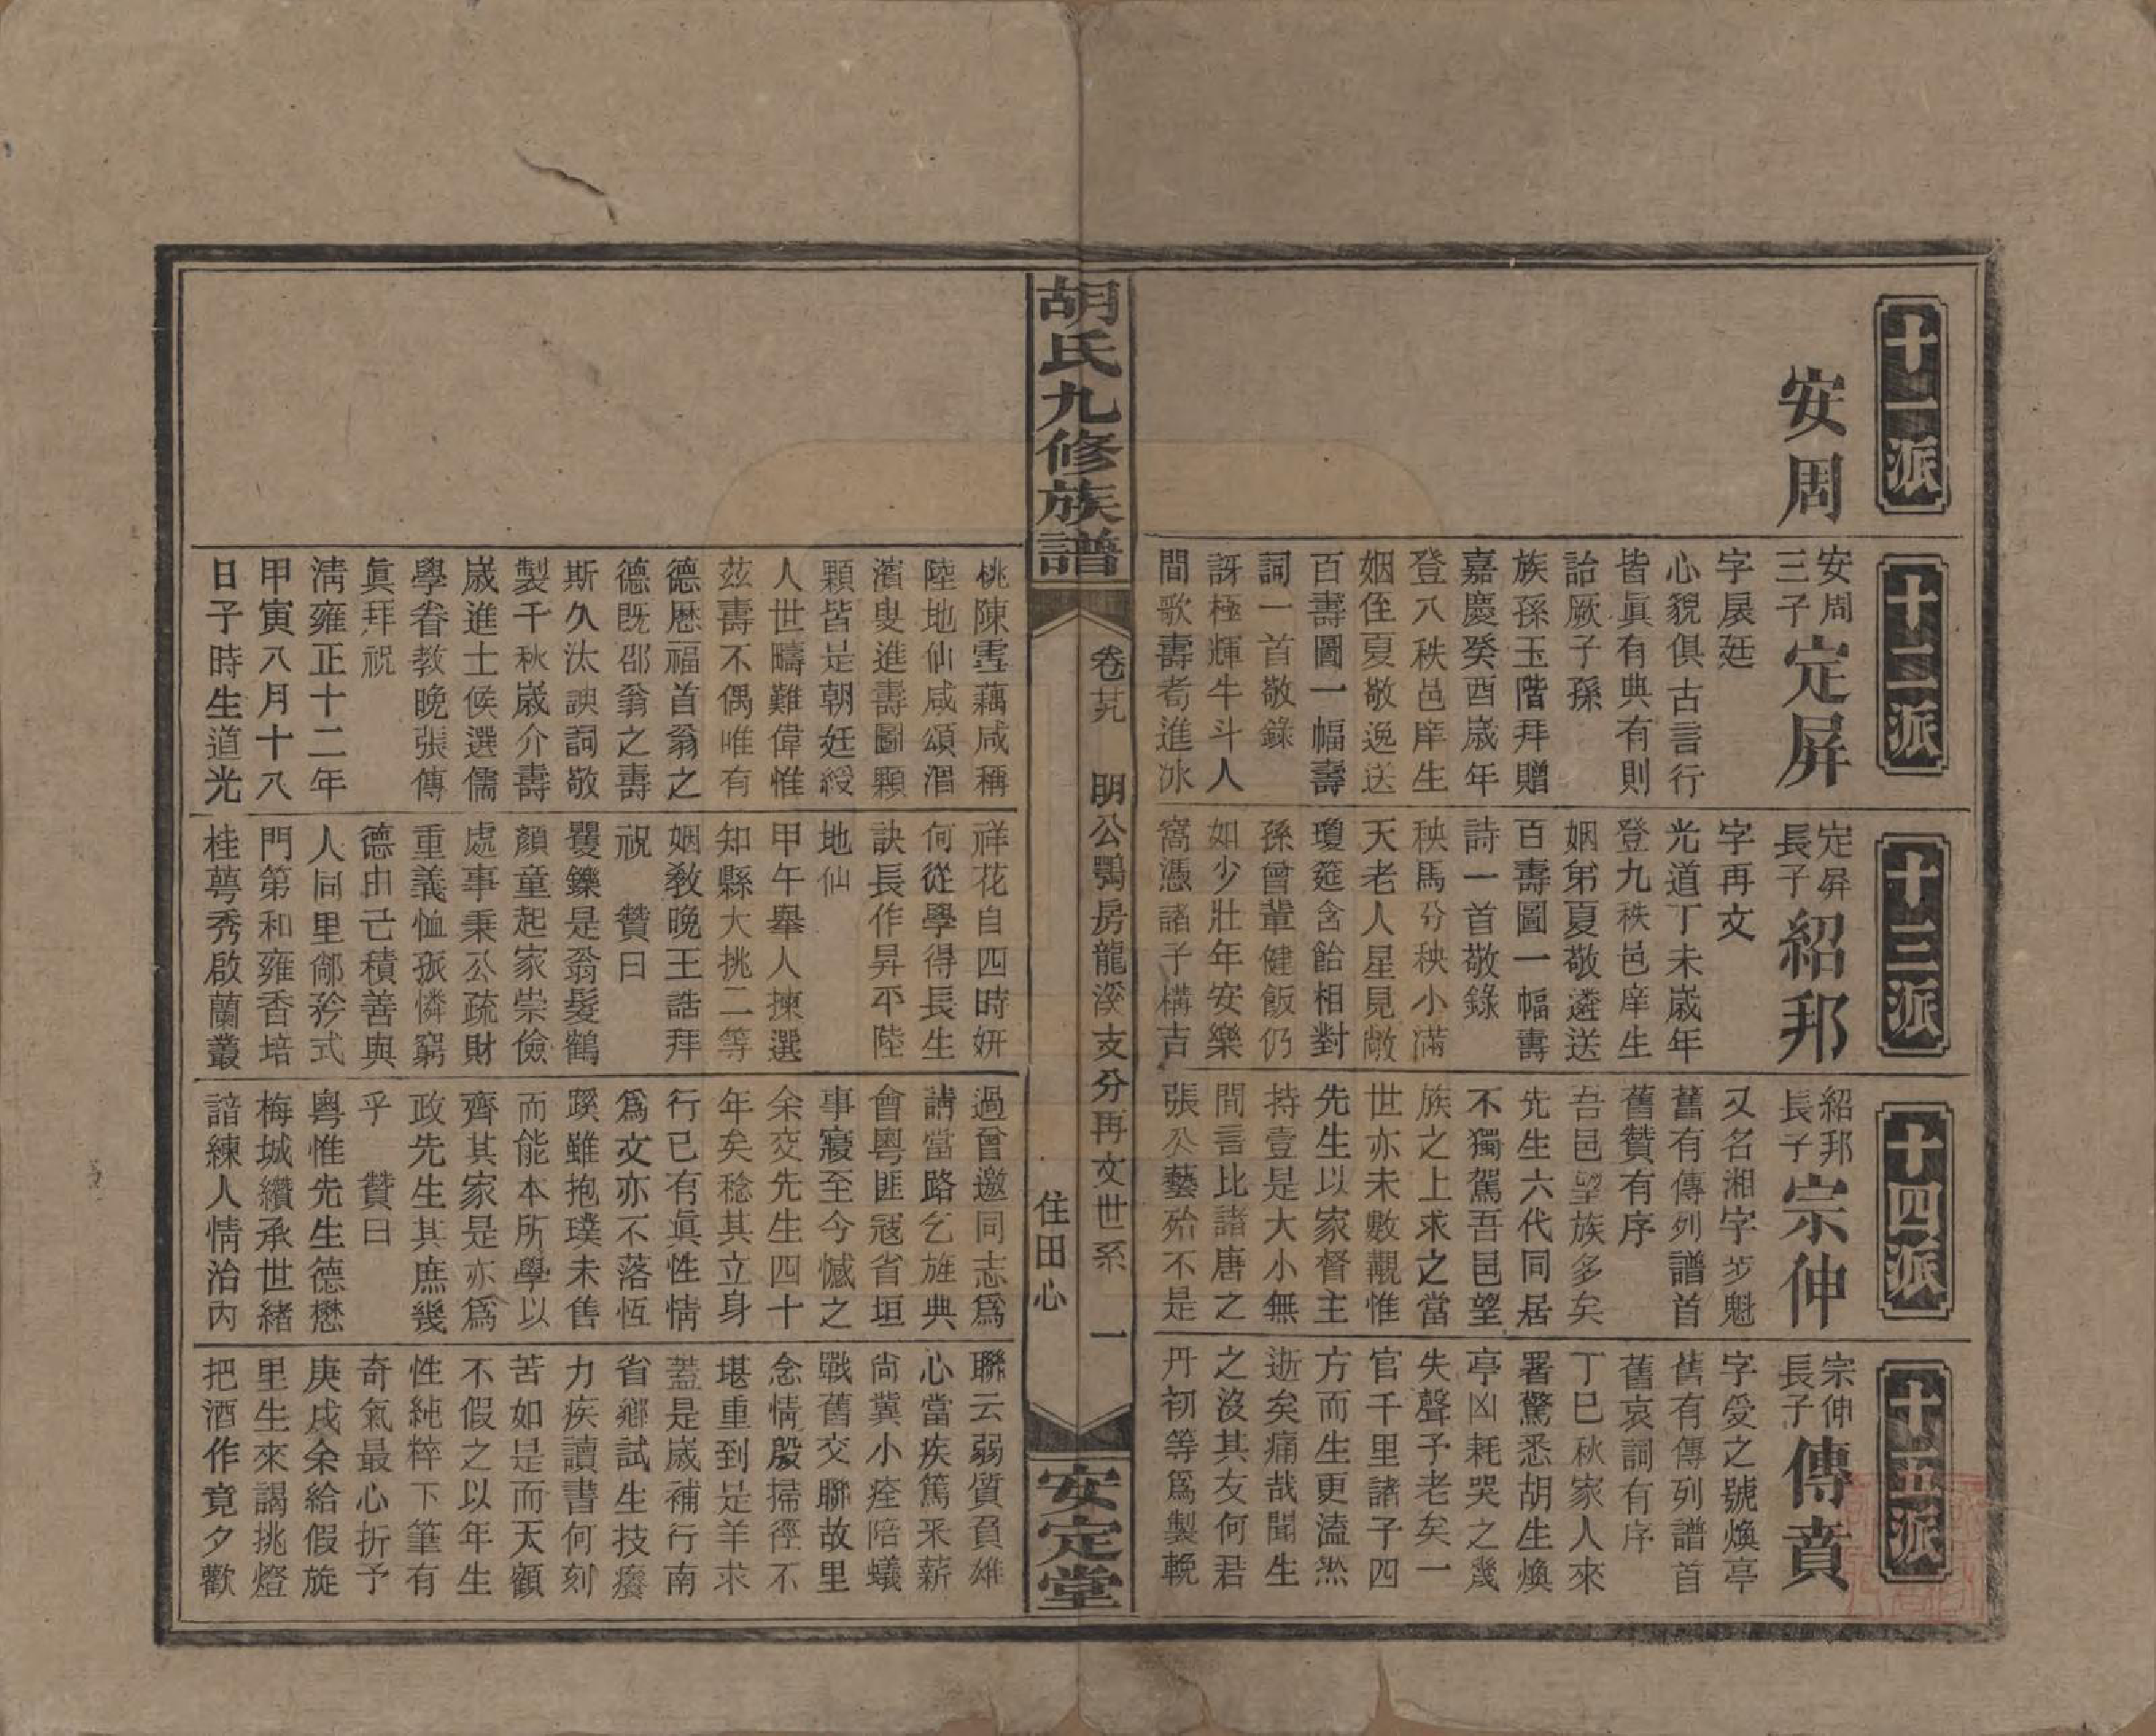 十一派
安周
十二派
安周
三子
定屏
字扆廷
心貌俱古言行
皆眞有典有則
詒厥子孫
族孫玉階拜贈
嘉慶癸酉嵗年
登八秩邑庠生
姻侄夏敬逸送
百壽圖一幅壽
詞一首敬錄
訝極輝牛斗人
間歌壽耈進冰
桃陳雪藕咸稱
陸地仙咸頌渭
濱叟進壽圖顆
顆皆是朝廷綬
人世疇難偉惟
茲壽不偶唯有
德歷福首翁之
德既邵翁之壽
斯久汰諛詞敬
製千秋嵗介壽
嵗進士候選儒
學眷教晚張傳
眞拜祝
淸雍正十二年
甲寅八月十八
日子時生道光
十三派
定屏
長子
紹邦
字再文
光道丁未嵗年
登九秩邑庠生
姻弟夏敬遴送
百壽圖一幅壽
詩一首敬錄
秧馬分秧小滿
天老人星見敞
瓊筵含飴相對
孫曾輩健飯仍
如少壯年安樂
窩憑諸子構吉
祥花自四時妍
何從學得長生
訣長作昇平陸
地仙
甲午舉人揀選
知縣大挑二等
姻教晚王誥拜
祝　贊曰
矍鑠是翁髮鶴
顏童起家崇儉
處事秉公疏財
重義恤孤憐窮
德由己積善與
人同里鄰矜式
門第和雍香培
桂萼秀啟蘭叢
十四派
紹邦
長子
宗伸
又名湘字步魁
舊有傳列譜首
舊贊有序
吾邑望族多矣
先生六代同居
不獨駕吾邑望
族之上求之當
世亦未數覯惟
先生以家督主
持壹是大小無
間言比諸唐之
張公藝殆不是
過曾邀同志爲
請當路乞旌典
會粵匪冦省垣
事寢至今憾之
余交先生四十
年矣稔其立身
行己有眞性情
爲文亦不落恆
蹊雖抱璞未售
而能本所學以
齊其家是亦爲
政先生其庶幾
乎　贊曰
粤惟先生德懋
梅城纘承世緒
諳練人情治內
十五派
宗伸
長子
傳賁
字受之號煥亭
舊有傳列譜首
舊哀詞有序
丁巳秋家人來
署驚悉胡生煥
亭凶耗哭之幾
失聲予老矣一
官千里諸子四
方而生更溘然
逝矣痛哉聞生
之沒其友何君
丹初等爲製輓
聯云弱質負雄
心當疾篤釆薪
尙冀小痊陪蟻
戰舊交聯故里
念情殷掃徑不
堪重到是羊求
蓋是嵗補行南
省鄉試生技癢
力疾讀書何刻
苦如是而天顧
不假之以年生
性純粹下筆有
奇氣最心折予
庚戌余給假旋
里生來謁挑燈
把酒作竟夕歡
胡氏九修族譜
卷廿九　明公鸚房龍溪支分再文世系　一
住田心
安定堂